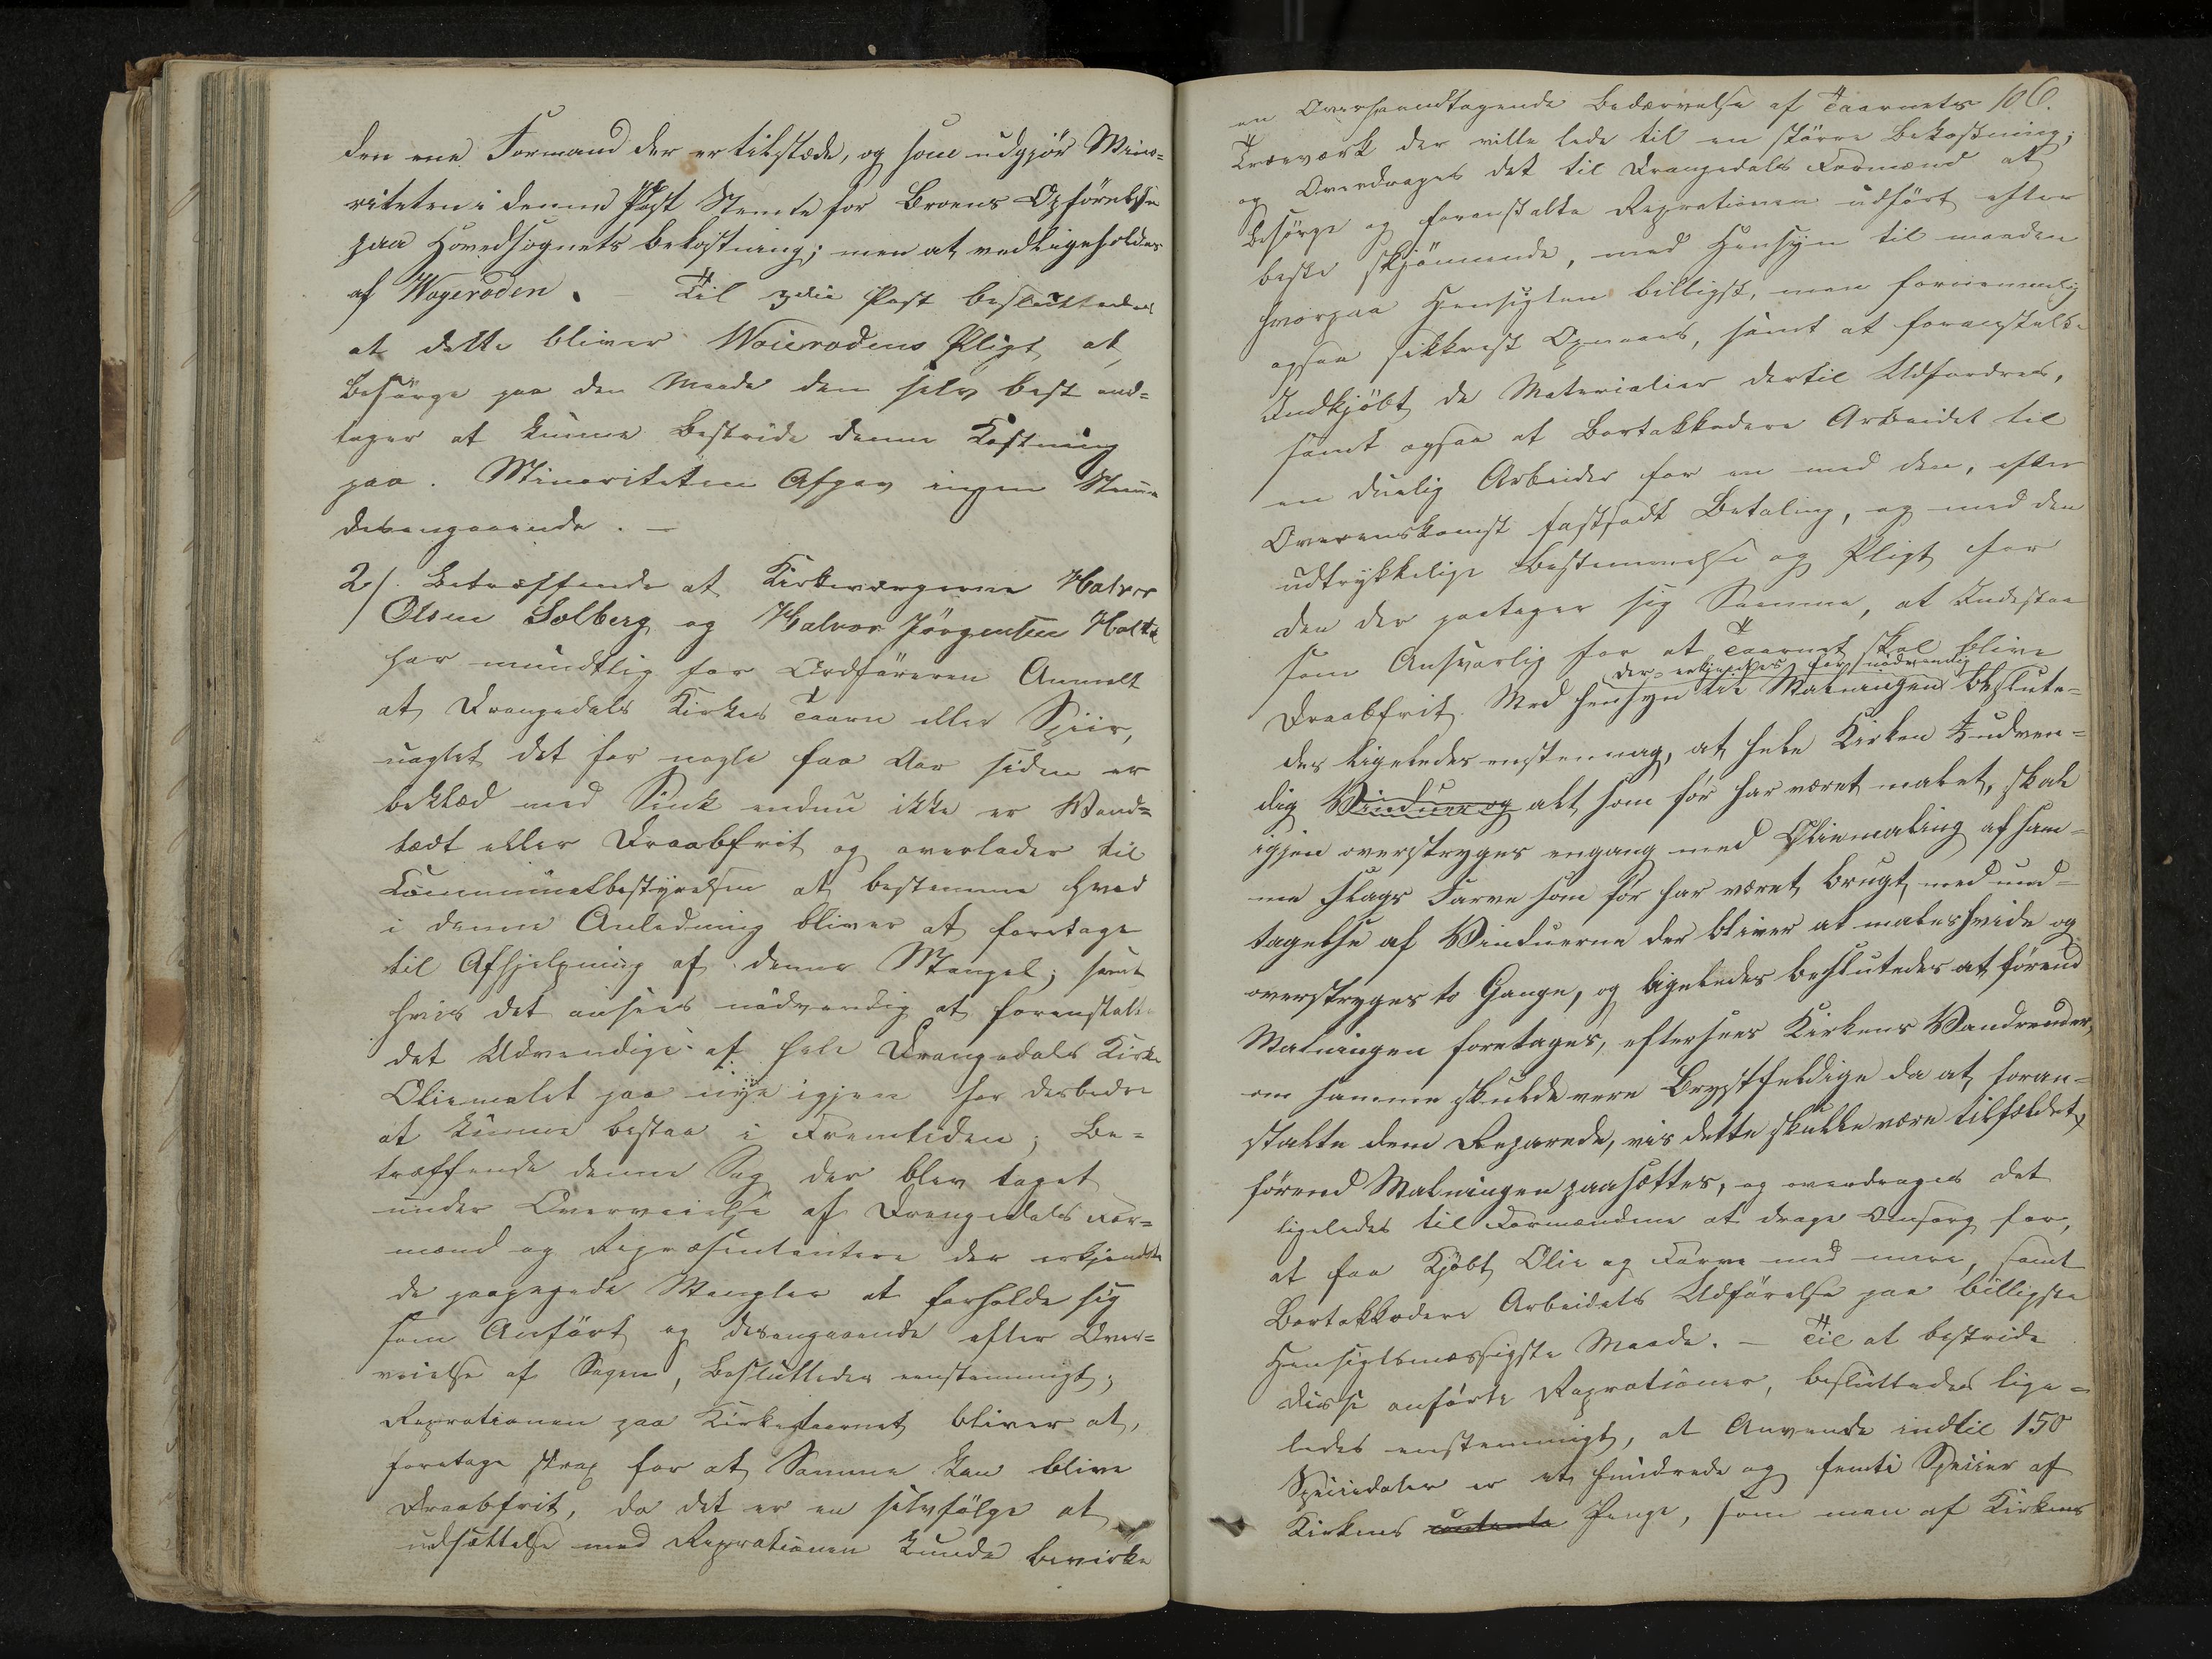 den ene Formand der er tilstæde, og som udgjør Mino-
riteten i denne Post Stemte for Broens Opførelse
paa Hovedsognets bekostning; men at vedligeholdes
af Wogeroden. – Til 3die Post besluttedes
at dette bliver Woierodens Pligt at
besørge paa den Maade den selv best and-
tager at kunne bestride denne Kostning
paa. Minoriteten Afgav ingen Stemme
desangaaende. –
2/. Betræffende at Kirkeværgerne Halvor
Olsen Solberg og Halvor Jörgensen Holte
har mundtlig for Ordføreren Anmelt
at Drangedals Kirkes Taarn eller Spiir,
uagtet det for nogle faa Aar siden er
beklæd med Sink endnu ikke er Vand-
tædt eller Draabfrit og overlader til
Communalbestyrelsen at bestemme hvad
i denne Anledning bliver at foretage
til Afhjelpning af denne Mangel; samt
hvis det ansees nødvendig at foranstalte
det Udvendige af hele Drangedals Kirke
Oliemalet paa nye igjen for desbedre
at kunne bestaa i Fremtiden; Be-
træffende denne Sag der blev taget
under Overveielse af Drangedals For-
mænd og Repræsentantere der erkjendte
de paapegede Mangler at forholde sig
som Anført og desangaaende efter Over-
veielse af Sagen, Besluttedes eenstemmigt;
Reprationen paa Kirketaarnet bliver at,
foretage strax for at Samme kan blive
Draabfrit, da det er en selvfølge at
udsættelse med Reprationen kunde bevirke
en Overhaandtagende Bedærvelse af Taarnets 106.
Træeværk der ville lede til en større Bekostning;
og Overdrages det til Drangedals Formænd at
besørge og foranstalte Reprationen udført efter
beste skjønnende, med Hensyn til maaden
hvorpaa Hensigten billigst, men fornemmelig
ogsaa sikkrest Opnaaes, samt at foranstalte
Indkjøbt de Materialier dertil Udfordres,
samt ogsaa at Bortakkodere Arbeidet til
en duelig Arbeider for en med den, efter
Overenskomst fastsadt Betaling, og med den
udtrykkelige Bestemmelse og Pligt for
den der paatager sig Samme, at Indestaa
som Ansvarlig for at Taarnet skal blive
der erkjendtes for nødvendig
Draabfrit. Med hensyn til Malningen beslute-
des ligeledes enstemmig, at hele Kirken udven-
dig Vinduer og alt som før har været malet, skal
igjen overstryges engang med Oliemaling af sam-
me slags Farve som før har været brugt med und-
tagelse af Vinduerne der bliver at males hvide og
overstryges to Gange, og ligeledes beslutedes at førend
Malningen foretages, eftersees Kirkens Vandrender,
om samme skulde vere Brystfeldige da at foran-
stalte dem Reparede, vis dette skulle være tilfældet,
førend Malningen paasættes, og overdrages det
ligeledes til Formændene at drage Omsorg for,
at faa Kjøbt Olie og Farve med mere, samt
Bortakkodere Arbeidets Udførelse paa billigste
Hensigtsmæssigste Maade. – Til at bestride
disse anførte Reprationer, besluttedes lige-
ledes enstemmigt, at Anvende indtil 150
Speciedaler er et hundrede og femti Speiier af
Kirkens contante Penge, som man af Kirkens